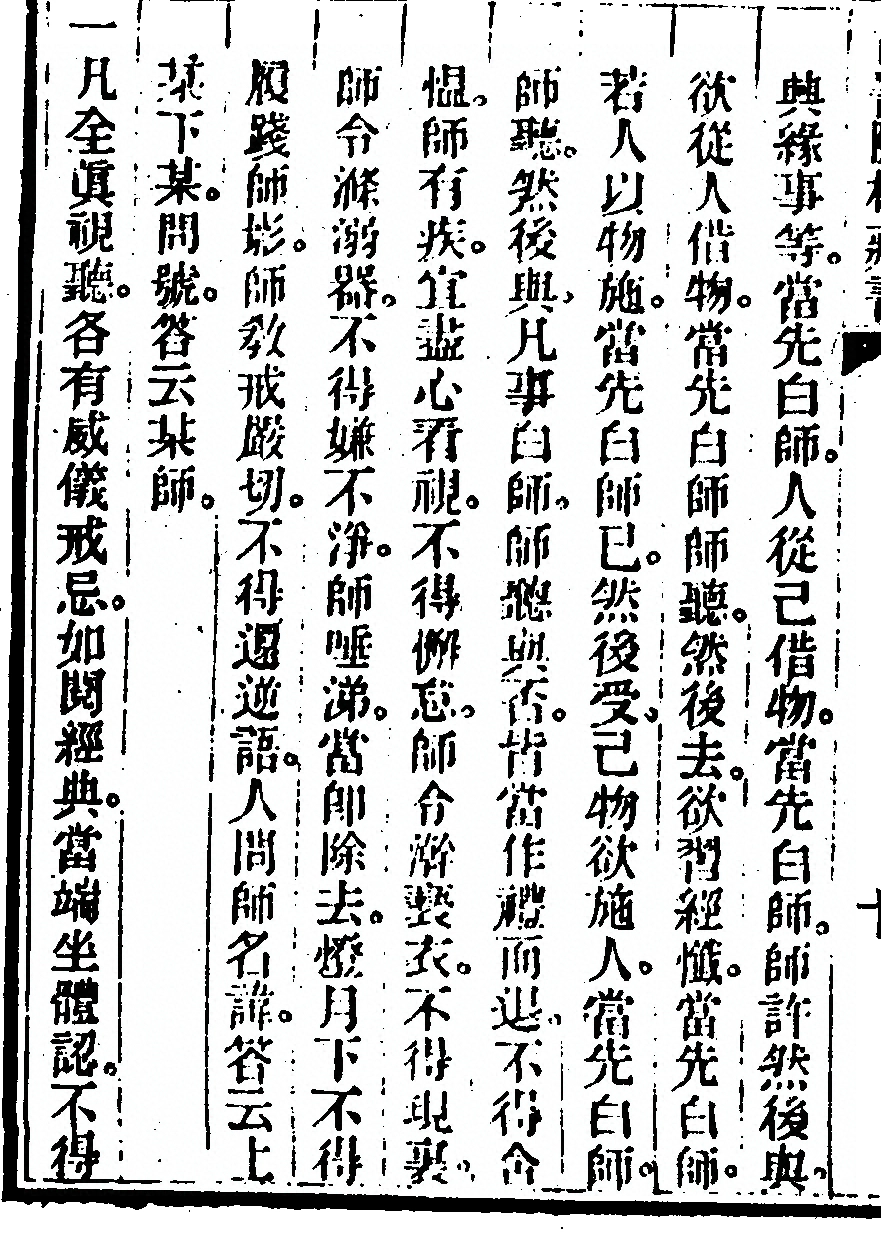 興緣事等。當先白師。人從己借物。當先白師。師許然後與。
欲從人借物。當先白師師聽。然後去。欲習經懺。當先白師。
若人以物施。當先白師已。然後受。己物欲施人。當先白師。
師聽。然後與。凡事白師。師聽與否。皆當作禮而退。不得含
慍。師有疾。宜盡心看視。不得懈怠。師令澣褻衣。不得現裏。
師令滌溺器。不得嫌不淨。師唾涕。當即除去。燈月下不得
履踐師影。師教戒嚴切。不得還逆語。人問師名諱。答云上
某下某。問號。答云某師。
一凡全眞視聽。各有威儀戒忌。如閱經典。當端坐體認。不得